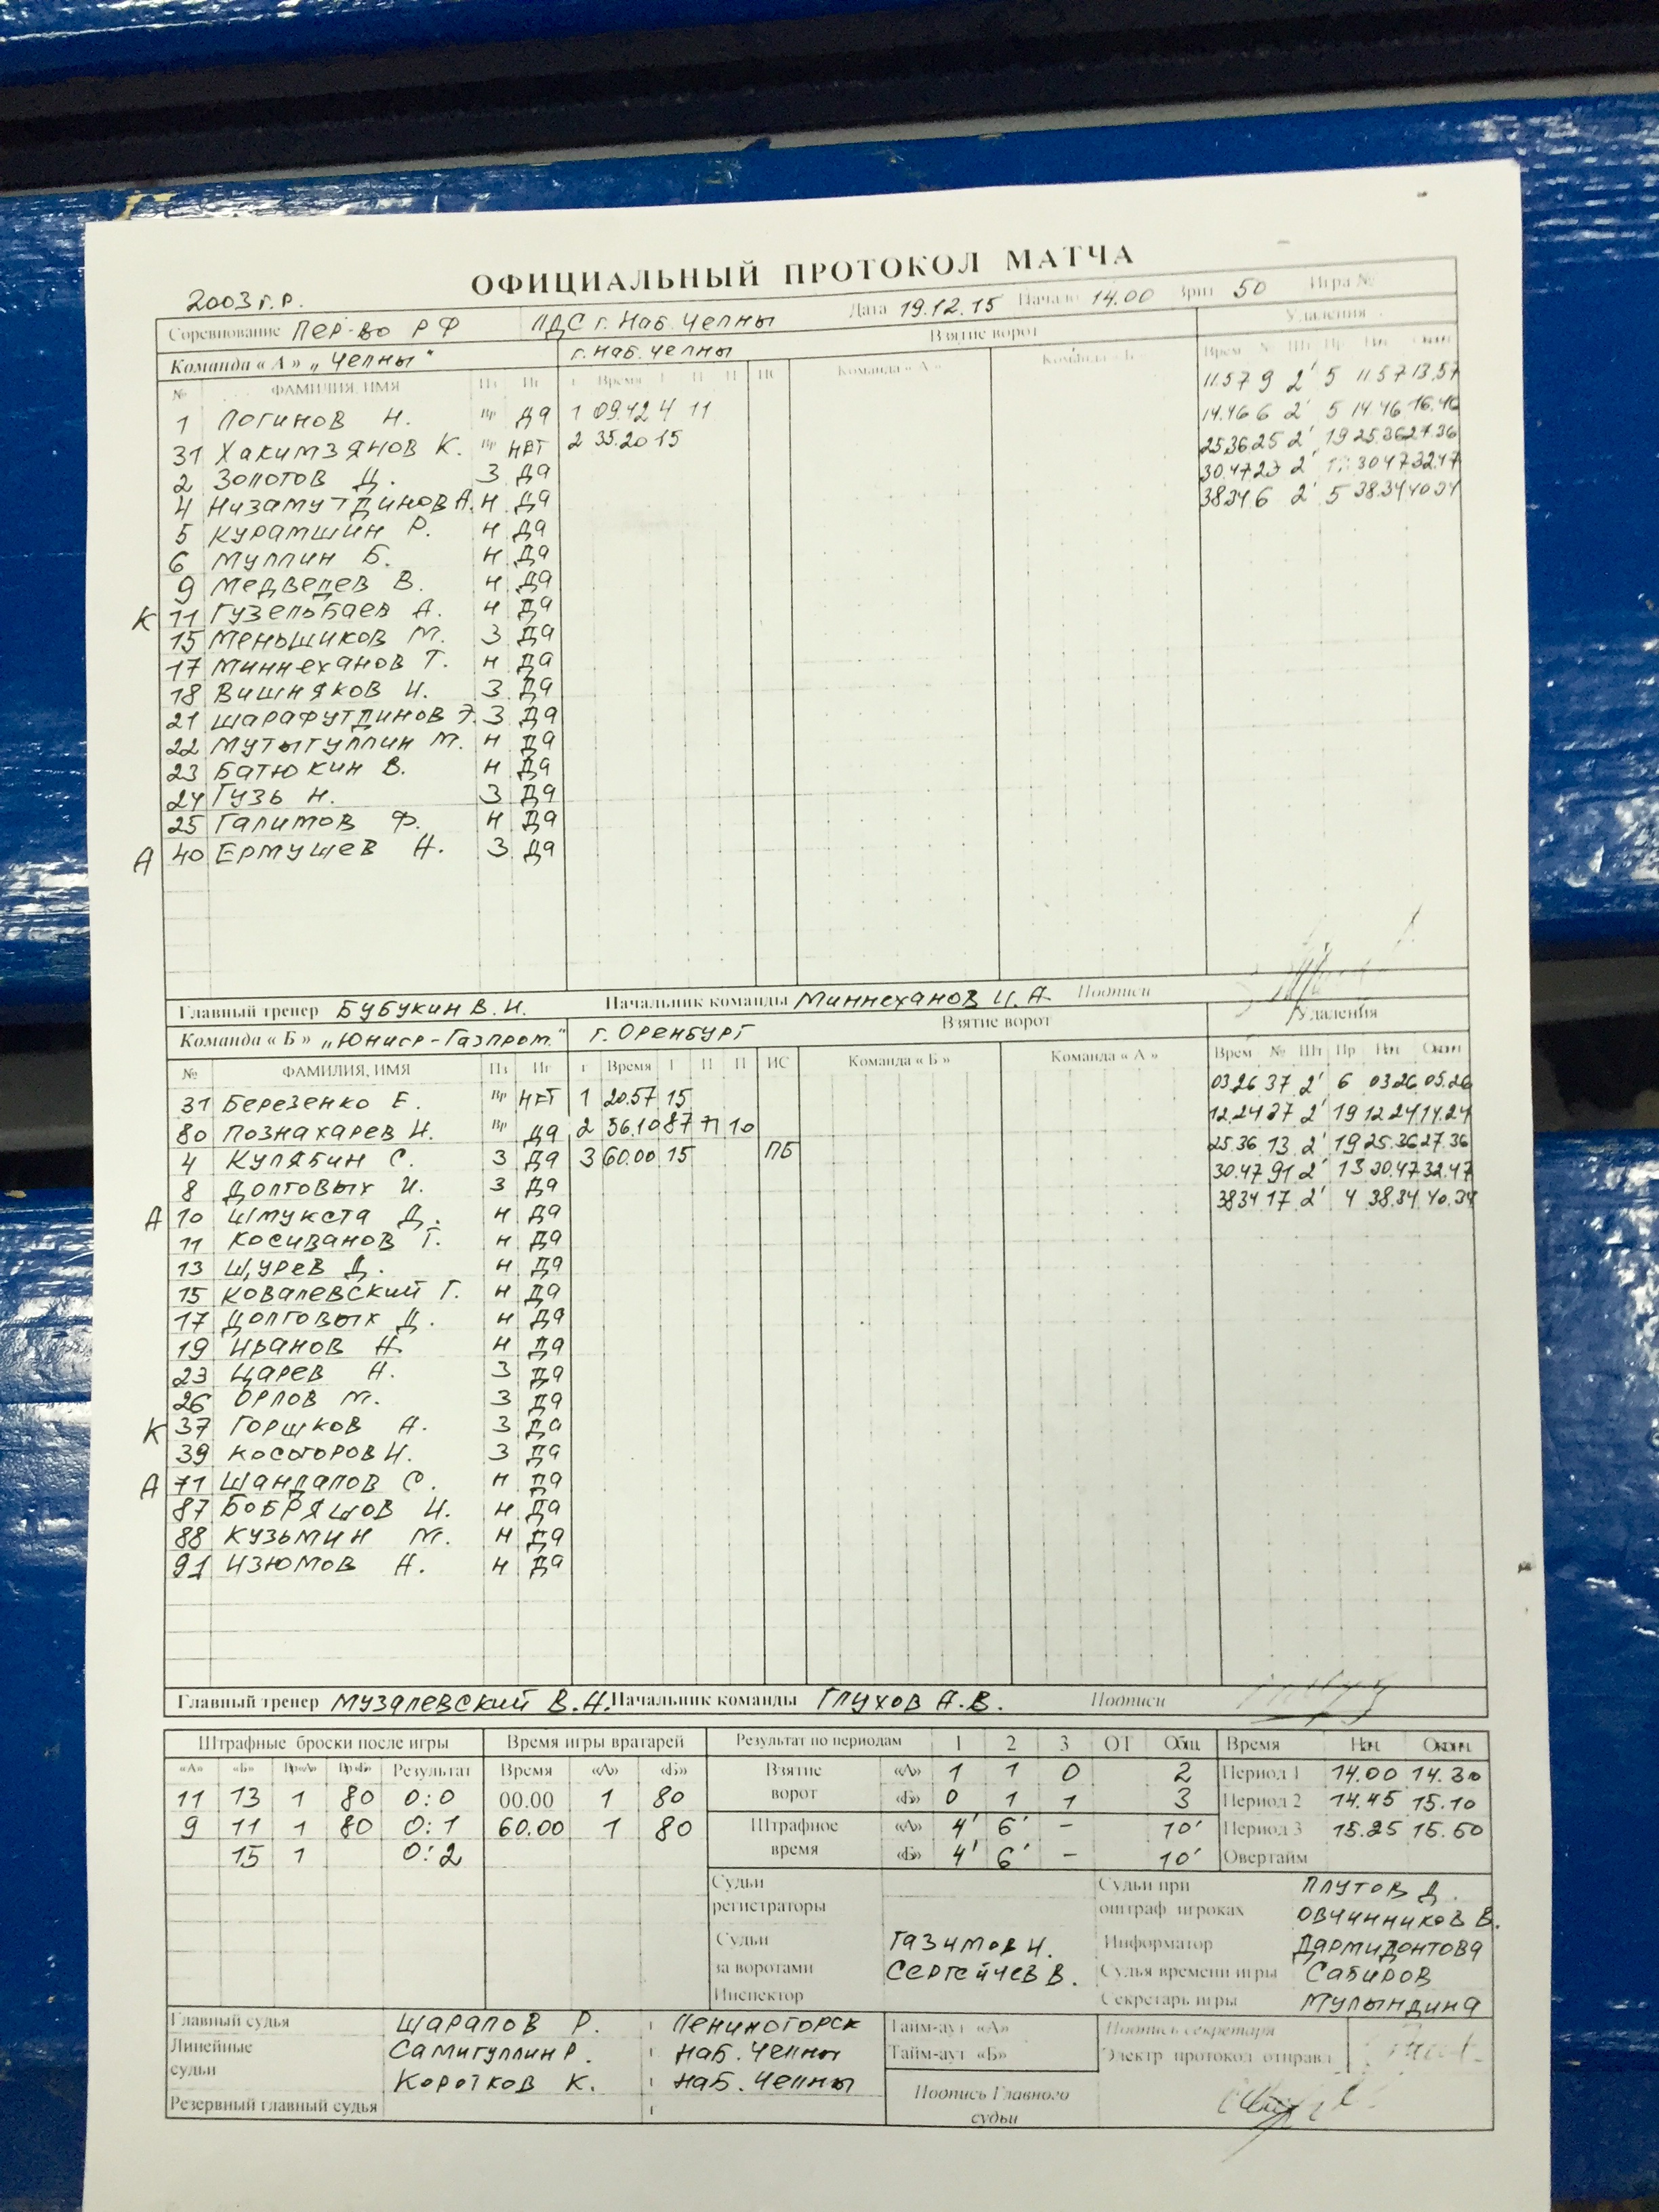 ОФИЦИАЛЬНЫЙ ПРОТОКОЛ МАТЧА
2003 г.р.
Соревнование ПЕР-ВО РФ ЛДС г. НАБ. ЧЕЛНЫ Дата 19.12.15 Начало 14.00 Зрит 50 Игра №
Команда « А » „ЧЕЛНЫ" г. НАБ. ЧЕЛНЫ Взятие ворот Удаления
№ ФАМИЛИЯ, ИМЯ Пз Иг Г Время Г П П ИС Команда « А » Команда « Б » Врем № Шт Пр Нач Оконч
1 ЛОГИНОВ Н. Вр ДА 1 09.42 4 11 11.57 9 2' 5 11.57 13.57
31 ХАКИМЗЯНОВ К. Вр НЕТ 2 35.20 15 14.46 6 2' 5 14.46 16.46
2 ЗОЛОТОВ Д. З ДА 25.36 25 2' 19 25.36 27.36
4 НИЗАМУТДИНОВ А. Н ДА 30.47 23 2' 30.47 32.47
5 КУРАМШИН Р. Н ДА 38.34 6 2' 5 38.34 40.34
6 МУЛЛИН Б. Н ДА
9 МЕДВЕДЕВ В. Н ДА
К 11 ГУЗЕЛЬБАЕВ А. Н ДА
15 МЕНЬШИКОВ М. З ДА
17 МИННЕХАНОВ Т. Н ДА
18 ВИШНЯКОВ И. З ДА
21 ШАРАФУТДИНОВ Э. З ДА
22 МУТЫГУЛЛИН М. Н ДА
23 БАТЮКИН В. Н ДА
24 ГУЗЬ Н. З ДА
25 ГАЛИМОВ Ф. Н ДА
А 40 ЕРМУШЕВ Н. З ДА
Главный тренер БУБУКИН В.И. Начальник команды МИННЕХАНОВ И.А. Подписи
Команда « Б » „ЮНИОР-ГАЗПРОМ" г. ОРЕНБУРГ Взятие ворот Удаления
№ ФАМИЛИЯ, ИМЯ Пз Иг Г Время Г П П ИС Команда « Б » Команда « А » Врем № Шт Пр Нач Оконч
31 БЕРЕЗЕНКО Е. Вр НЕТ 1 20.57 15 03.26 37 2' 6 03.26 05.26
80 ПОЗНАХАРЕВ И. Вр ДА 2 56.10 87 71 10 12.24 37 2' 19 12.24 14.24
4 КУЛЯБИН С. З ДА 3 60.00 15 ПБ 25.36 13 2' 19 25.36 27.36
8 ДОЛГОВЫХ И. З ДА 30.47 91 2' 13 30.47 32.47
А 10 ШМУКСТА Д. Н ДА 38.34 17 2' 4 38.34 40.34
11 КОСИВАНОВ Г. Н ДА
13 ЩУРЕВ Д. Н ДА
15 КОВАЛЕВСКИЙ Г. Н ДА
17 ДОЛГОВЫХ Д. Н ДА
19 ИВАНОВ А. Н ДА
23 ЦАРЕВ Н. З ДА
26 ОРЛОВ М. З ДА
К 37 ГОРШКОВ А. З ДА
39 КОСОГОРОВ И. З ДА
А 71 ШАНДАЛОВ С. Н ДА
87 БОБРЯШОВ И. Н ДА
88 КУЗЬМИН М. Н ДА
91 ИЗЮМОВ А. Н ДА
Главный тренер МУЗАЛЕВСКИЙ В.Н. Начальник команды ГЛУХОВ А.В. Подписи
Штрафные броски после игры Время игры вратарей Результат по периодам 1 2 3 ОТ Общ Время Нач. Оконч.
«А» «Б» Вр«А» Вр«Б» Результат Время «А» «Б» Взятие «А» 1 1 0 2 Период 1 14.00 14.30
11 13 1 80 0:0 00.00 1 80 ворот «Б» 0 1 1 3 Период 2 14.45 15.10
9 11 1 80 0:1 60.00 1 80 Штрафное «А» 4' 6' - 10' Период 3 15.25 15.50
15 1 0:2 время «Б» 4' 6' - 10' Овертайм
Судьи Судьи при ПЛУТОВ Д.
регистраторы оштраф игроках ОВЧИННИКОВ В.
Судьи ГАЗИМОВ И. Информатор ДАРМИДОНТОВА
за воротами СЕРГЕЙЧЕВ В. Судья времени игры САБИРОВ
Инспектор Секретарь игры МУЛЫНДИНА
Главный судья ШАРАПОВ Р. ЛЕНИНОГОРСК Тайм-аут «А» Подпись секретаря
Линейные САМИГУЛЛИН Р. НАБ. ЧЕЛНЫ Тайм-аут «Б» Электр протокол отправл
судьи КОРОТКОВ К. НАБ. ЧЕЛНЫ Подпись Главного
Резервный главный судья судьи